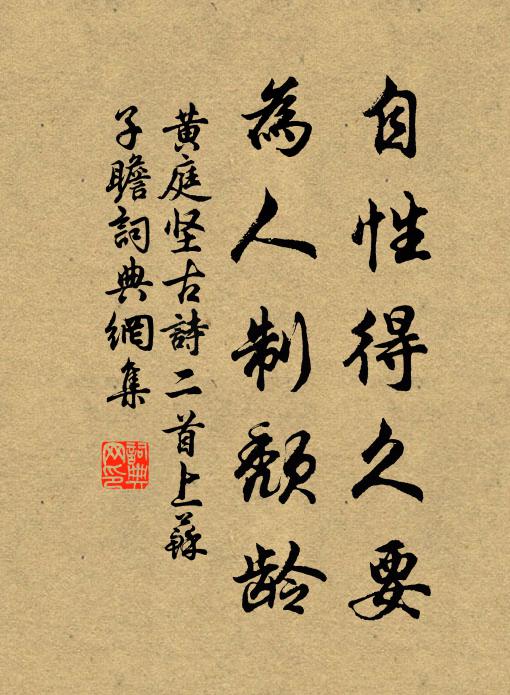 自性得久要
為人制頹齡
黃庭坚古詩二首上蘇
子瞻詞典網集
詞典网印